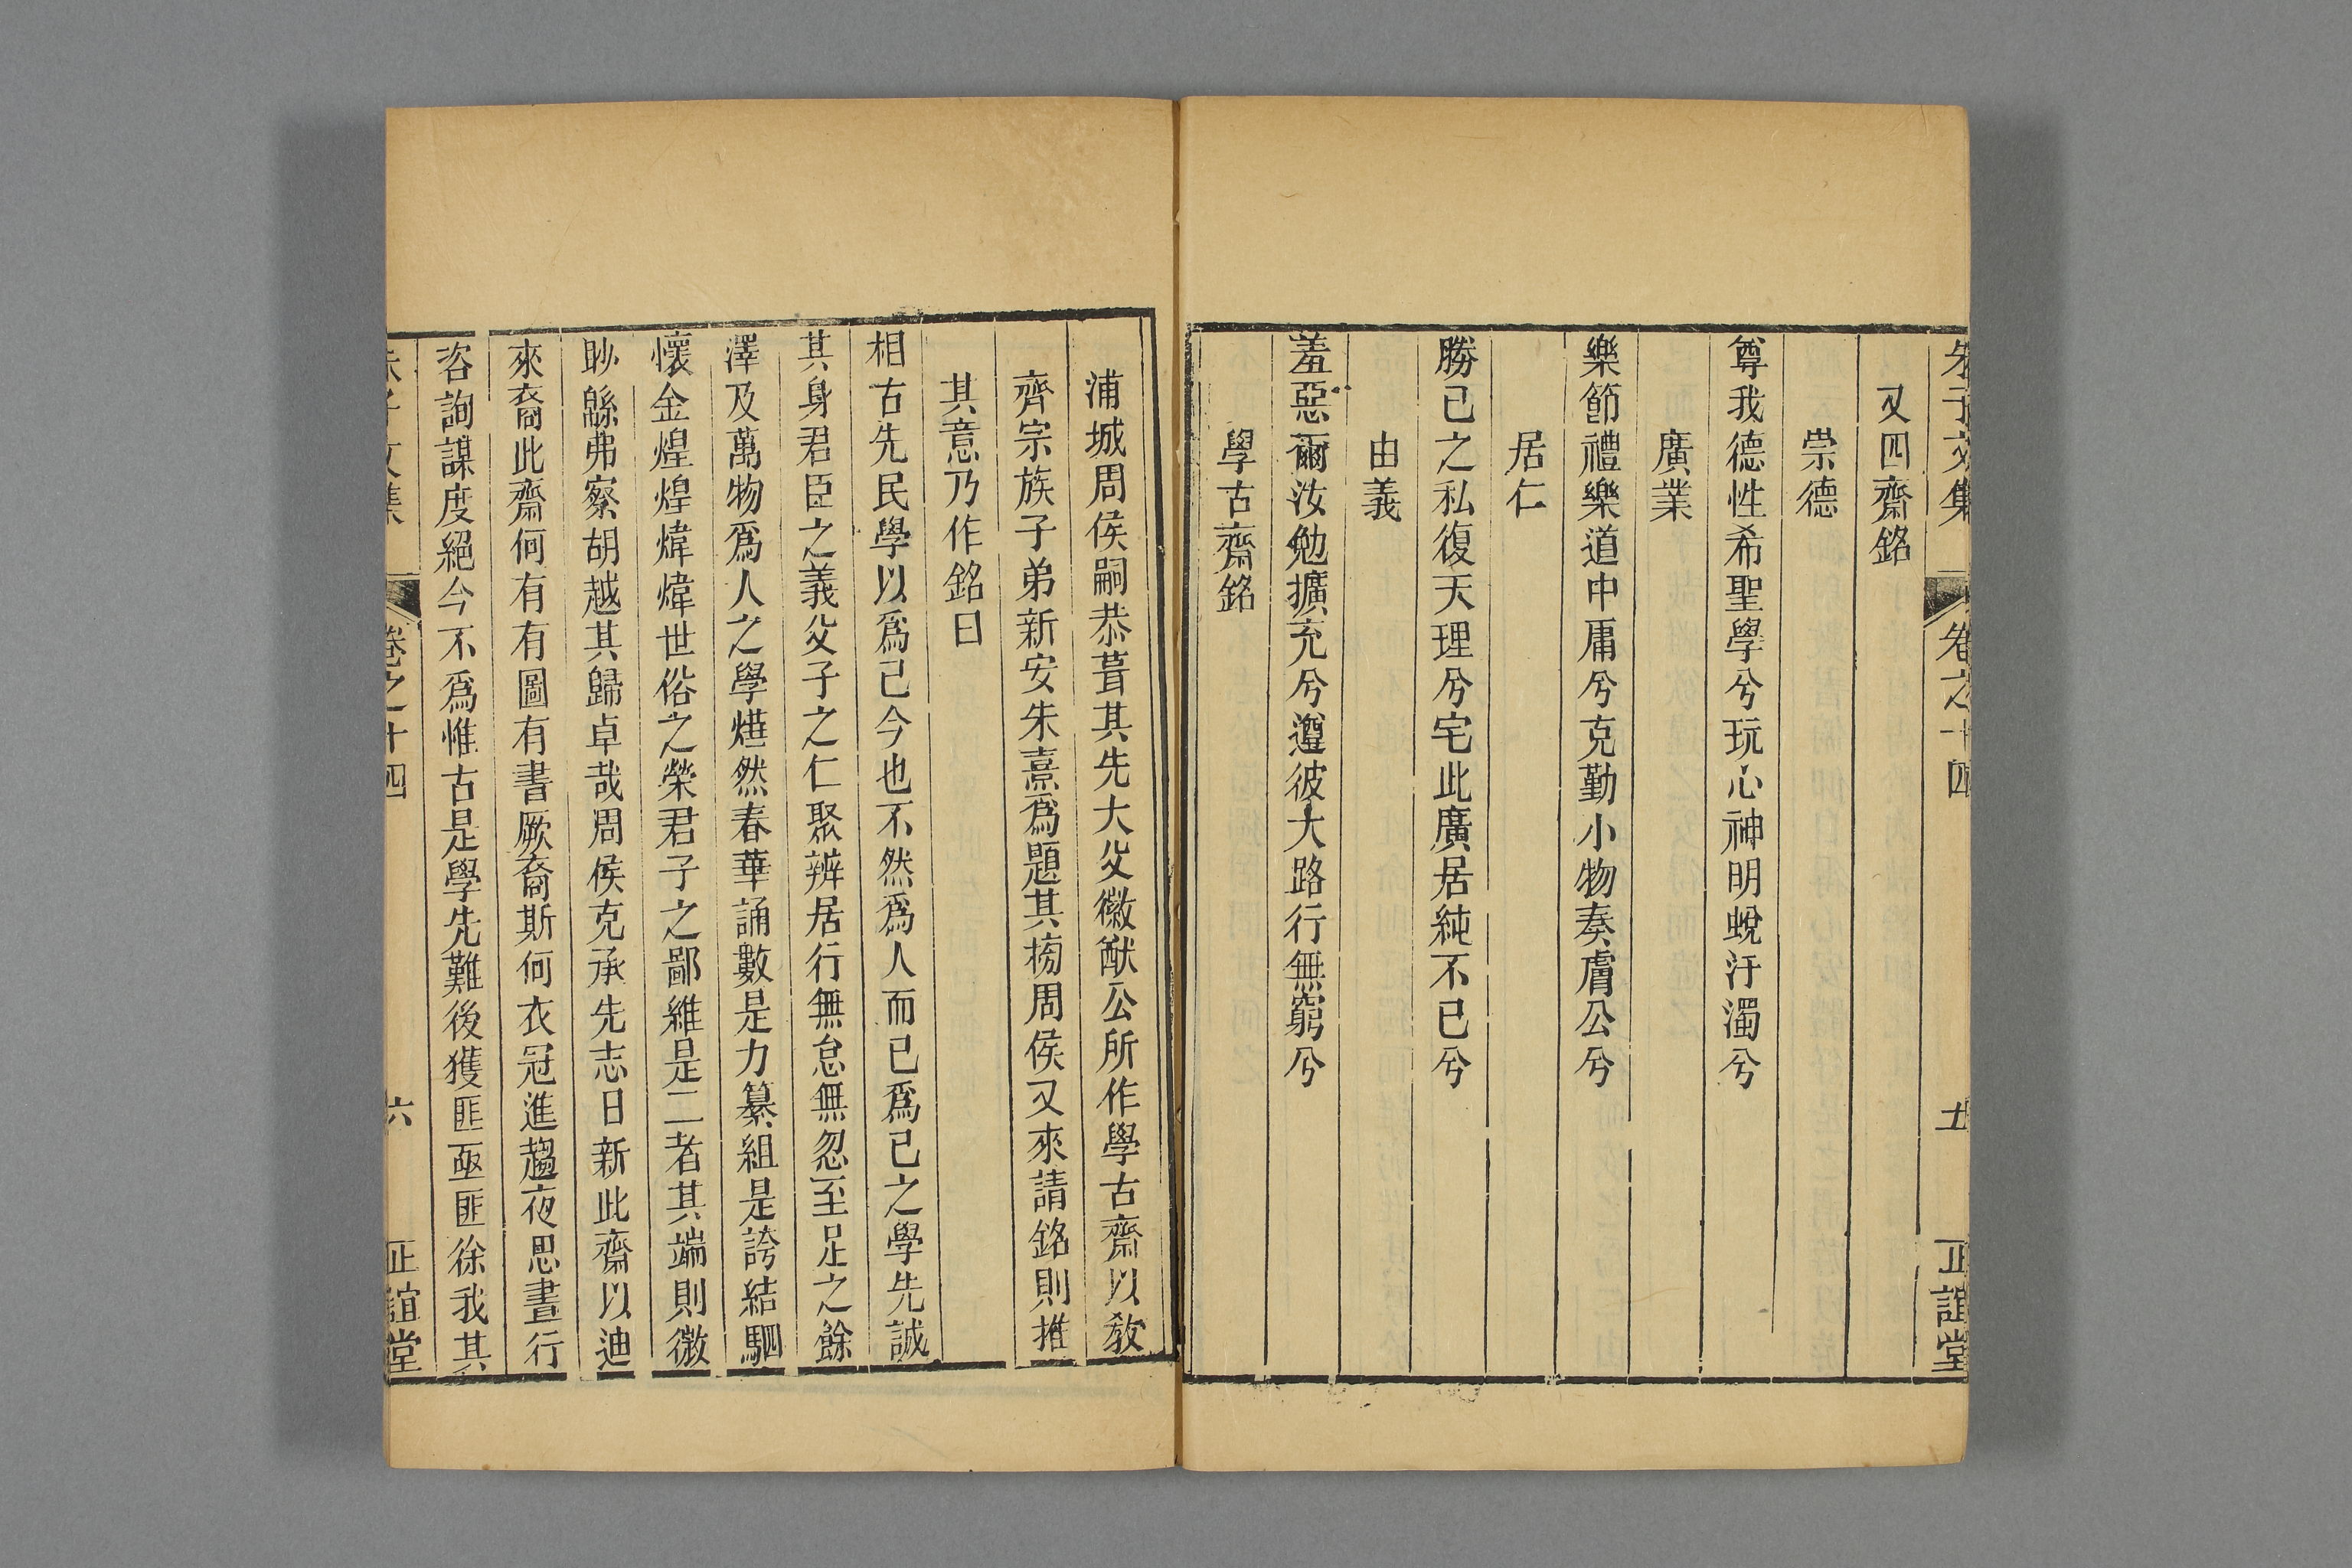 朱子文集
卷之十四
十一
正誼堂
又四齋銘
崇德
尊我德性希聖學兮玩心神明蛻汙濁兮
廣業
樂節禮樂道中庸兮克勤小物奏膚公兮
居仁
勝己之私復天理兮宅此廣居純不已兮
由義
羞惡爾汝勉擴充兮遵彼大路行無窮兮
學古齋銘
浦城周侯嗣恭葺其先大父徽猷公所作學古齋以教
齊宗族子弟新安朱熹爲題其牓周侯又來請銘則推
其意乃作銘曰
相古先民學以爲己今也不然爲人而已爲己之學先誠
其身君臣之義父子之仁聚辨居行無怠無忽至足之餘
澤及萬物爲人之學燁然春華誦數是力纂組是誇結駟
懷金煌煌煒煒世俗之榮君子之鄙維是二者其端則微
眇緜弗察胡越其歸卓哉周侯克承先志日新此齋以迪
來裔此齋何有有圖有書厥裔斯何衣冠進趨夜思晝行
咨詢謀度絕今不爲惟古是學先難後獲匪亟匪徐我其
朱子文集
卷之十四
六
正誼堂